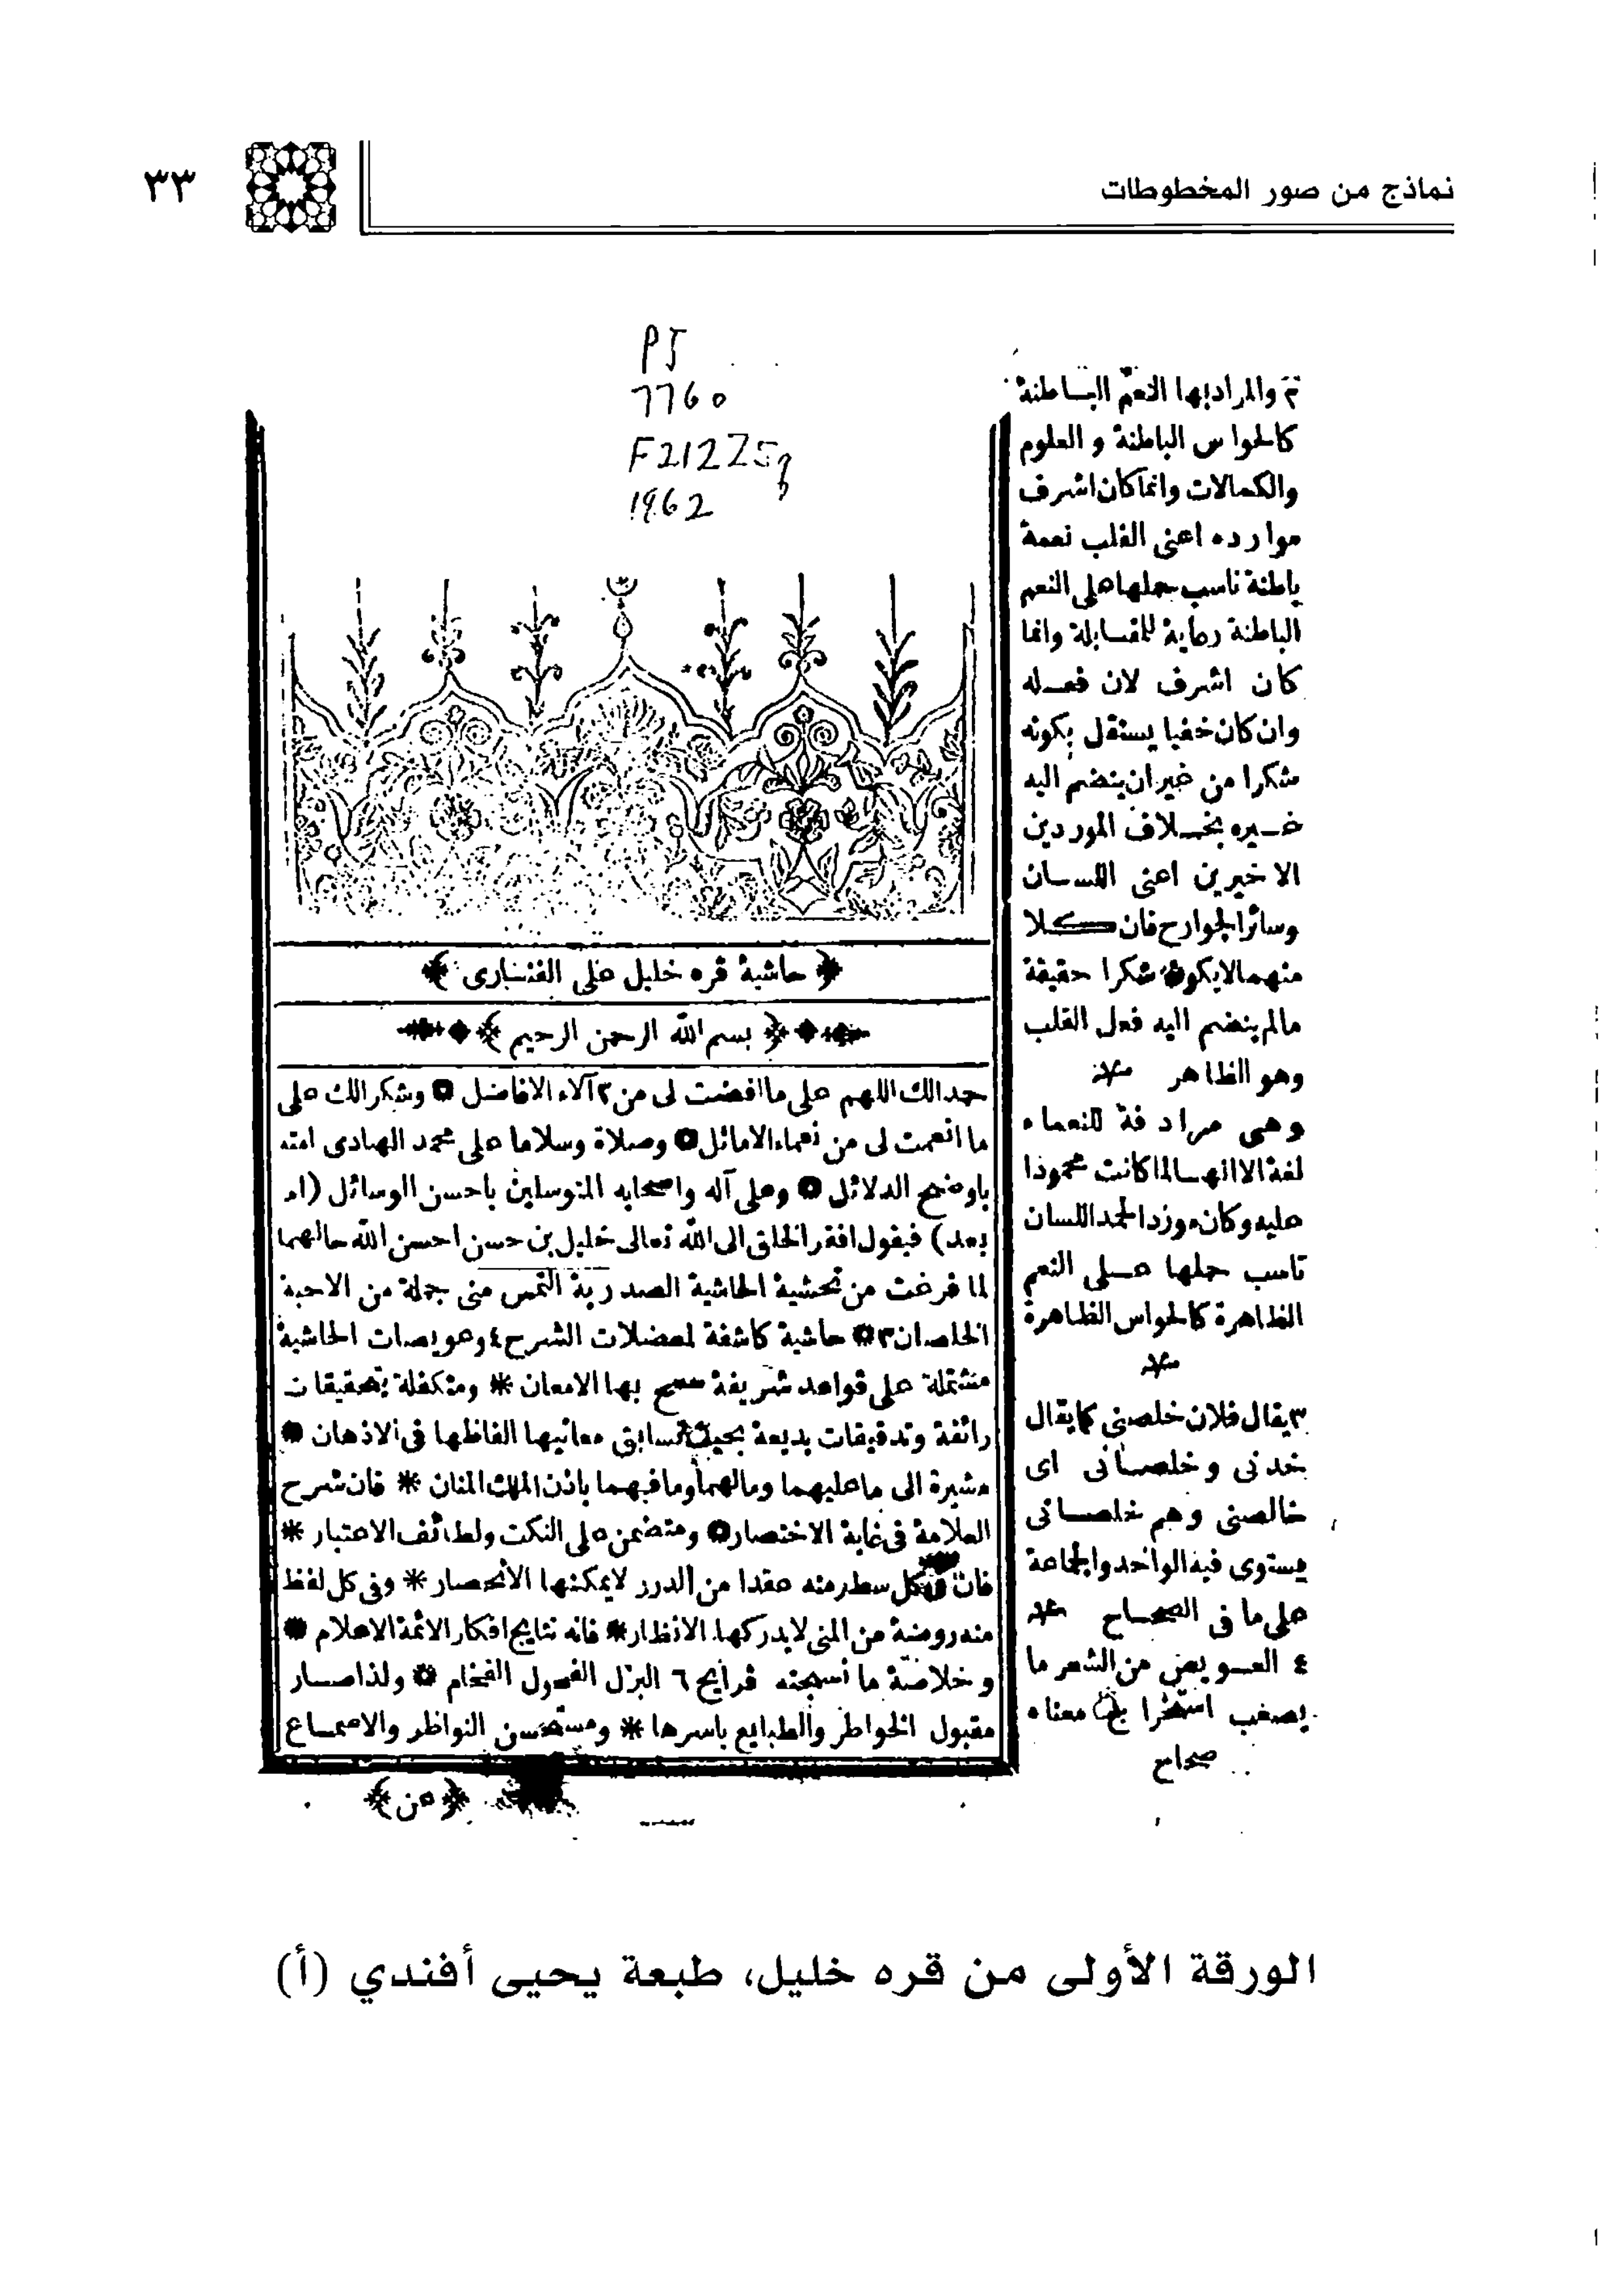 نماذج من صور المخطوطات
٣٣
PJ
7760
F212Z5q
1962
﴿ حاشية قره خليل على الفنارى ﴾
﴿ بسم الله الرحمن الرحيم ﴾
حمدا لك اللهم على ما افضت لى من ٢ آلاء الافاضل * وشكرا لك على
ما انعمت لى من نعماء الاماثل * وصلاة وسلاما على محمد الهادى امته
باوضح الدلائل * وعلى آله واصحابه المتوسلين باحسن الوسائل (اما
بعد) فيقول افقر الخلق الى الله تعالى خليل بن حسن احسن الله حالهما
لما فرغت من تحشية الحاشية الصدرية التمس منى جملة من الاحبة
الخلصان ٣ * حاشية كاشفة لمعضلات الشرح ٤ وعويصات الحاشية
مشتملة على قواعد شريفة سمح بها الامعان * ومتكفلة بتحقيقات
رائقة وتدقيقات بديعة بحيث تسابق معانيها الفاظها فى الاذهان *
مشيرة الى ما عليهما وما لهما وما فيهما باذن الملك المنان * فان شرح
العلامة فى غاية الاختصار * ومتضمن على النكت ولطائف الاعتبار *
فان فى كل سطر منه عقدا من الدرر لا يمكنها الانحصار * وفى كل لفظ
منه روضة من المنى لا يدركها الانظار * فانه نتايج افكار الائمة الاعلام *
وخلاصة ما نسجته قرايح ٦ البزل الفحول الفخام * ولذا صار
مقبول الخواطر والطبايع باسرها * ومستحسن النواظر والاسماع
﴿ من ﴾
٢ والمراد بها النعم الباطنة
كالحواس الباطنة والعلوم
والكمالات وانما كان اشرف
موارده اعنى القلب نعمة
باطنة ناسب حملها على النعم
الباطنة رعاية للمقابلة وانما
كان اشرف لان فعله
وان كان خفيا يستقل بكونه
شكرا من غير ان ينضم اليه
غيره بخلاف الموردين
الاخيرين اعنى اللسان
وسائر الجوارح فان كلا
منهما لا يكون شكرا حقيقة
مالم ينضم اليه فعل القلب
وهو الظاهر منه
وهى مرادفة للنعماء
لغة الا انها لما كانت محمودا
عليه وكان مورد الحمد اللسان
ناسب حملها على النعم
الظاهرة كالحواس الظاهرة
منه
٣ يقال فلان خلصنى كما يقال
خدنى وخلصانى اى
خالصنى وهم خلصانى
يستوى فيه الواحد والجماعة
على ما فى الصحاح منه
٤ العويص من الشعر ما
يصعب استخراج معناه
صحاح
الورقة الأولى من قره خليل، طبعة يحيى أفندي (أ)